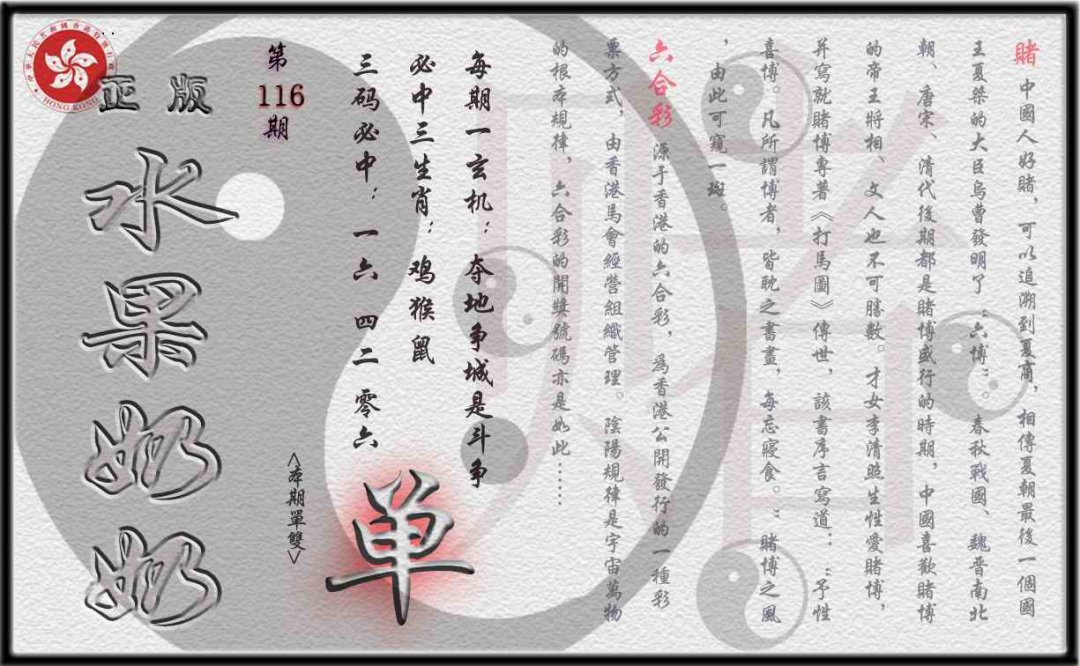 賭 中國人好賭，可以追溯到夏商，相傳夏朝最後一個國
王夏桀的大臣烏曹發明了“六博”。春秋戰國、魏晉南北
朝、唐宋、清代後期都是賭博盛行的時期，中國喜歡賭博
的帝王將相、文人也不可勝數。才女李清照生性愛賭博，
并寫就賭博專著《打馬圖》傳世，該書序言寫道：“予性
喜博。凡所謂博者，皆耽之書畫，每忘寢食。”賭博之風
，由此可窺一斑。
六合彩 源于香港的六合彩，爲香港公開發行的一種彩
票方式，由香港馬會經營組織管理。陰陽規律是宇宙萬物
的根本規律，六合彩的開獎號碼亦是如此……
每期一玄机：夺地争城是斗争
必中三生肖：鸡猴鼠
三码必中：一六 四二 零六
单
<本期單雙>
第116期
正版
水果奶奶
HONG KONG